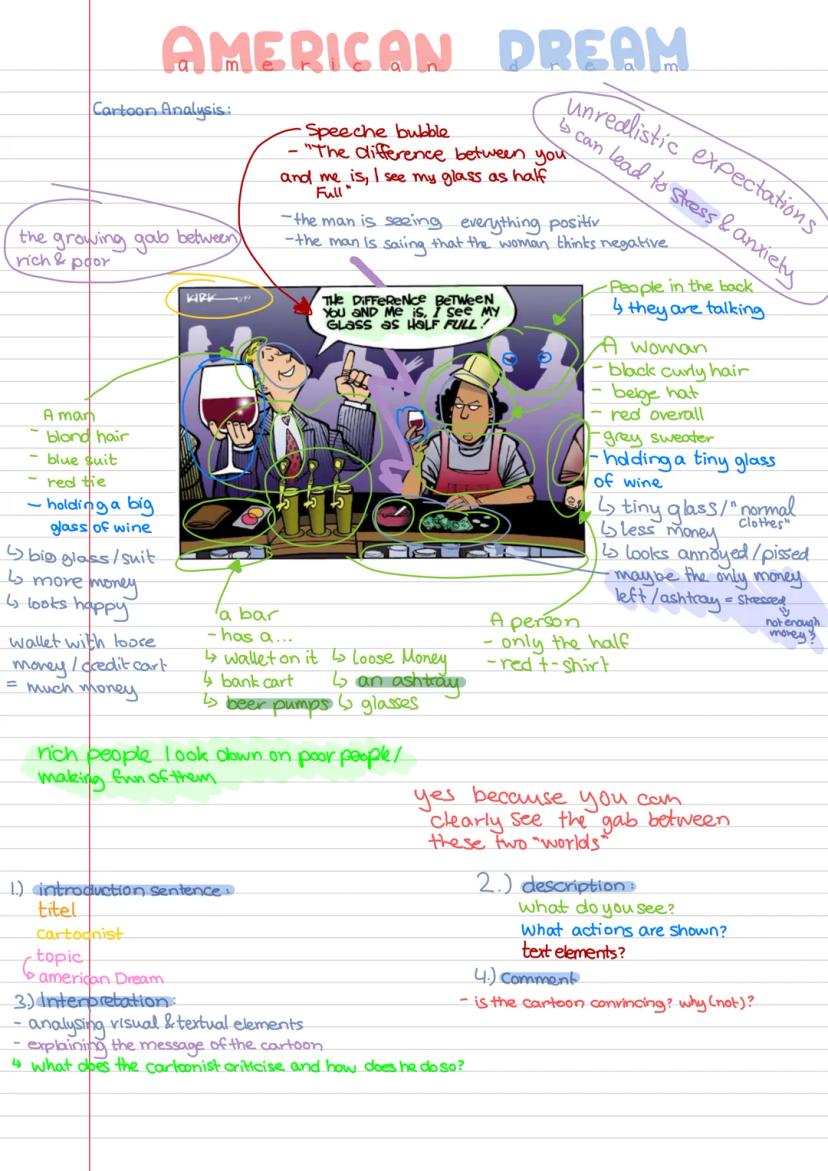 AMERICAN DREAM
american dream
Cartoon Analysis:
Speeche bubble
- "The difference between you
and me is, I see my glass as half
Full"
- the man is seeing everything positiv
- the man is saiing that the woman thinks negative
unrealistic expectations
↳ can lead to stress & anxiety
the growing gab between
rich & poor
KIRK
THE DIFFERENCE BETWEEN
YOU AND ME IS, I SEE MY
GLASS AS HALF FULL!
People in the back
↳ they are talking
A man
- blond hair
- blue suit
- red tie
- holding a big
glass of wine
↳ big glass/suit
↳ more money
↳ looks happy
wallet with loose
money / credit cart
= much money
A woman
- black curly hair
- beige hat
- red overall
- grey sweater
- holding a tiny glass
of wine
↳ tiny glass/"normal
clothes"
↳ less money
↳ looks annoyed/pissed
maybe the only money
left/ashtray = stressed
not enough
money?
a bar
- has a...
↳ wallet on it ↳ loose Money
↳ bank cart ↳ an ashtray
↳ beer pumps ↳ glasses
A person
- only the half
- red t-shirt
rich people look down on poor people/
making fun of them
yes because you can
clearly see the gab between
these two "worlds"
1.) introduction sentence:
titel
cartoonist
topic
↳ american Dream
2.) description:
what do you see?
what actions are shown?
text elements?
3.) Interpretation:
- analysing visual & textual elements
- explaining the message of the cartoon
↳ what does the cartoonist criticise and how does he do so?
4.) Comment
- is the cartoon convincing? why (not)?